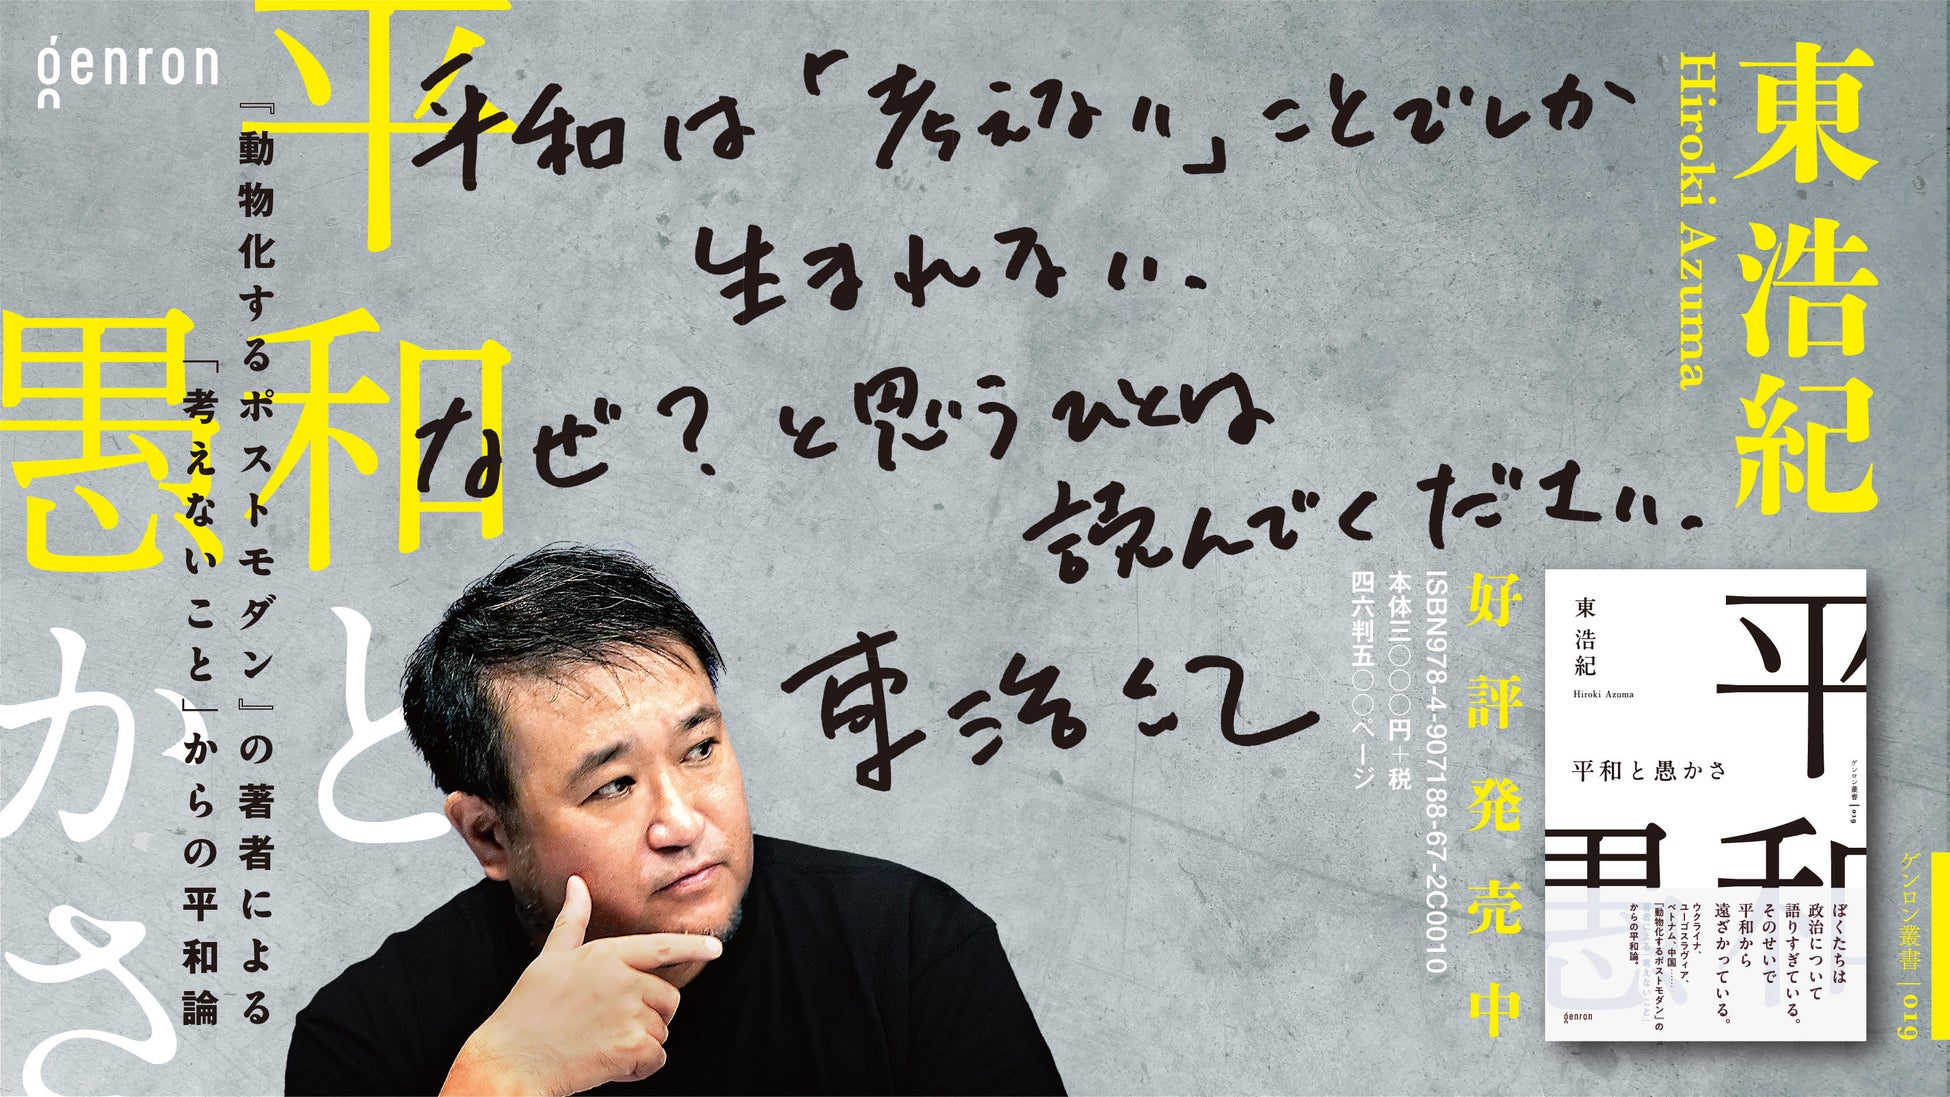 genron
平和と
愚かさ
『動物化するポストモダン』の著者による
「考えないこと」からの平和論
平和は「考えない」ことでしか
生まれない.
なぜ?と思うひとは
読んでください.
東浩紀
東浩紀
Hiroki Azuma
好評発売中
ISBN978-4-907188-67-2C0010
本体三〇〇〇円+税
四六判五〇〇ページ
東浩紀
Hiroki Azuma
平和と愚かさ
平和
愚
ゲンロン叢書|019
ぼくたちは
政治について
語りすぎている。
そのせいで
平和から
遠ざかっている。
ウクライナ、
ユーゴスラヴィア、
ベトナム、中国……
『動物化するポストモダン』の
著者による「考えないこと」
からの平和論。
genron
ゲンロン叢書|019